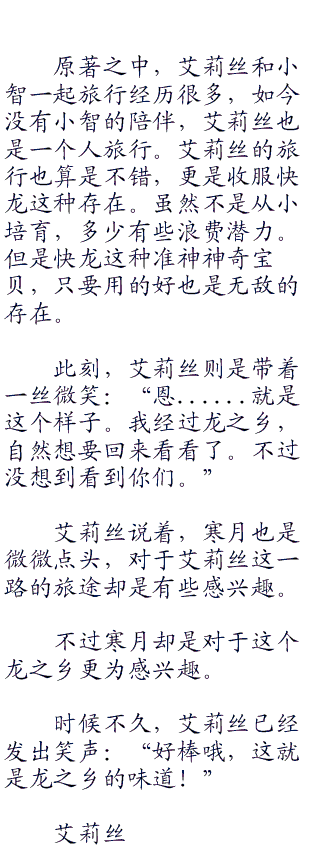 原著之中，艾莉丝和小
智一起旅行经历很多，如今
没有小智的陪伴，艾莉丝也
是一个人旅行。艾莉丝的旅
行也算是不错，更是收服快
龙这种存在。虽然不是从小
培育，多少有些浪费潜力。
但是快龙这种准神神奇宝
贝，只要用的好也是无敌的
存在。
此刻，艾莉丝则是带着
一丝微笑：“恩......就是
这个样子。我经过龙之乡，
自然想要回来看看了。不过
没想到看到你们。”
艾莉丝说着，寒月也是
微微点头，对于艾莉丝这一
路的旅途却是有些感兴趣。
不过寒月却是对于这个
龙之乡更为感兴趣。
时候不久，艾莉丝已经
发出笑声：“好棒哦，这就
是龙之乡的味道！”
艾莉丝